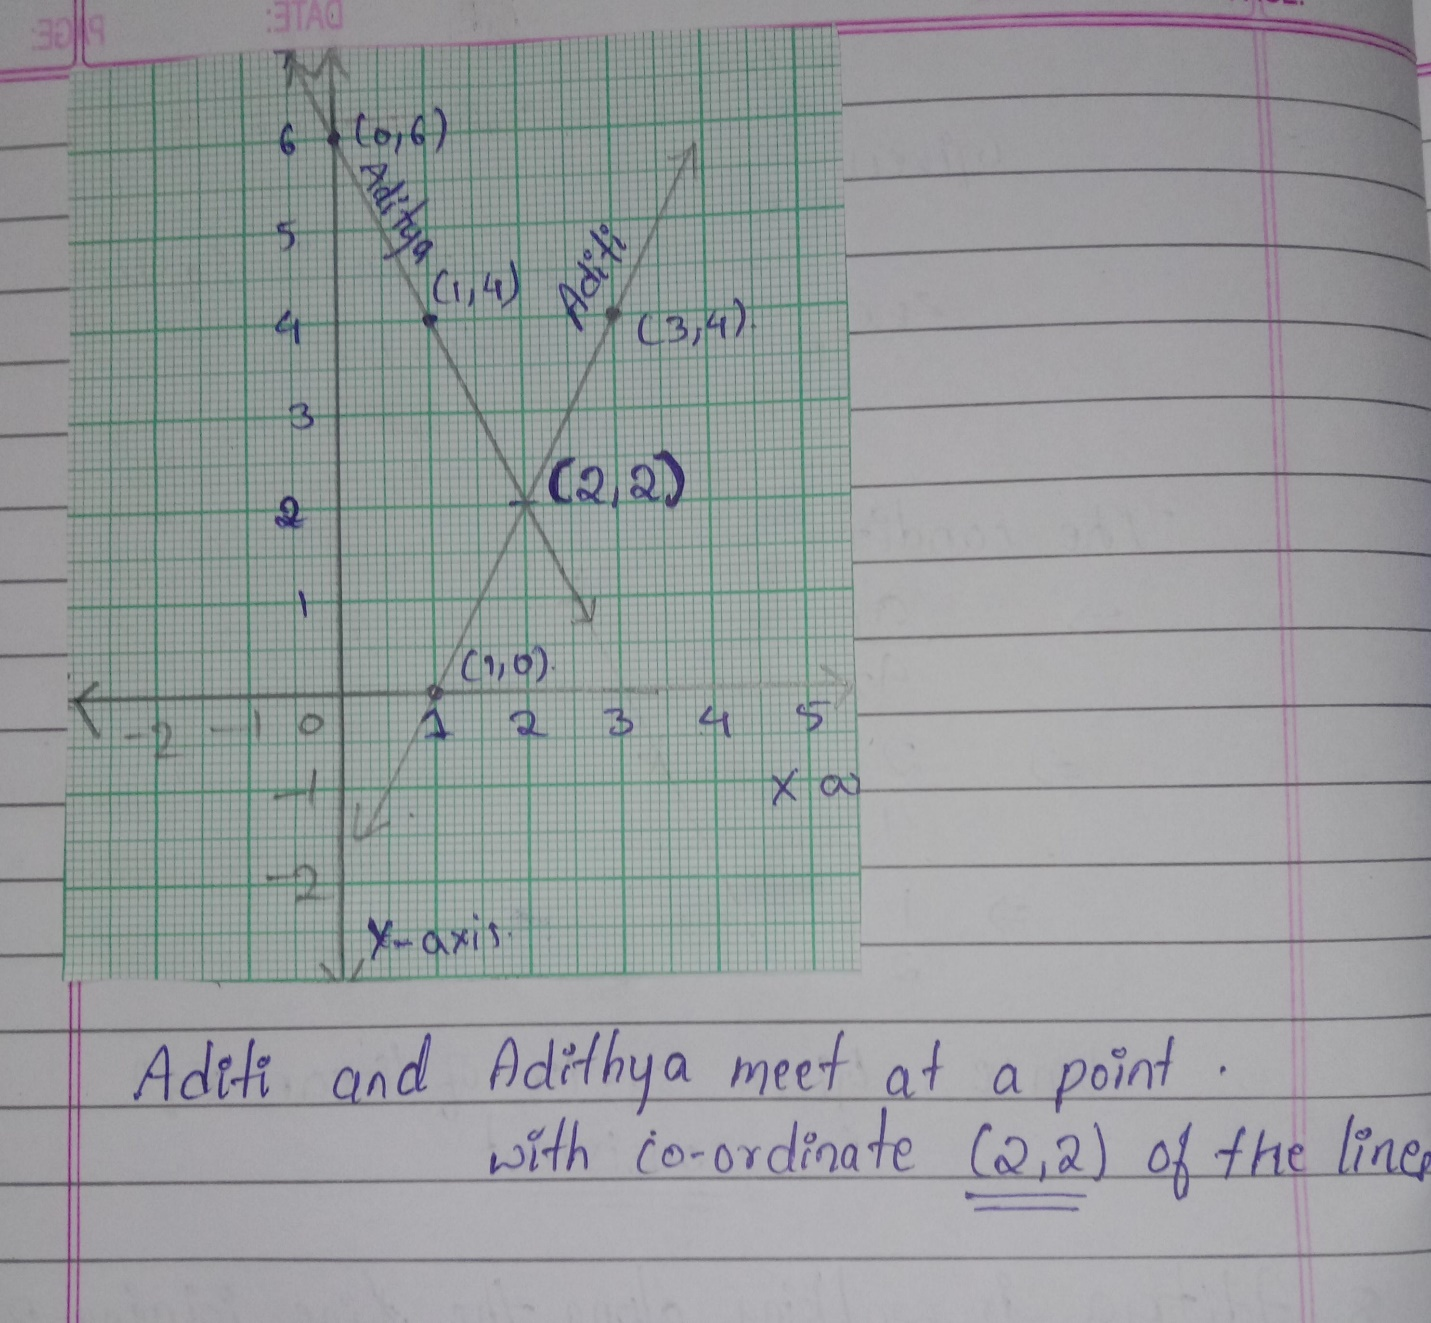 PAGE:
DATE:
7
6 (0,6)
Adithya
5
(1,4)
Aditi
4
(3,4).
3
(2,2)
2
1
(1,0).
-2 -1 0 1 2 3 4 5
-1
X a
-2
Y-axis.
Aditi and Adithya meet at a point.
with co-ordinate (2,2) of the lines